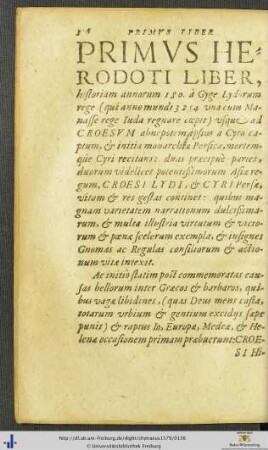 PRIMVS LIBER
PRIMVS HE-
RODOTI LIBER,
historiam annorum 150. à Gyge Lydorum
rege (qui anno mundi 3254 vna cum Ma-
nasse rege Iuda regnare cœpit) vsque ad
CROESVM abnepotem ipsius à Cyro ca-
ptum, & initia monarchiæ Persicæ, mortem-
que Cyri recitans: duas præcipuè partes,
duorum videlicet potentissimorum Asiæ re-
gum, CROESI LYDI, & CYRI Persæ,
vitam & res gestas continet: quibus ma-
gnam varietatem narrationum dulcissima-
rum, & multa illustria virtutum & vitio-
rum & pœnæ scelerum exempla, & insignes
Gnomas ac Regulas consiliorum & actio-
num vitæ intexit.
Ac initio statim post commemoratas cau-
sas bellorum inter Græcos & barbaros, qui-
bus vagæ libidines, (quas Deus mens casta,
totarum vrbium & gentium excidijs sæpe
punit) & raptus Io, Europæ, Medeæ, & He-
lenæ occasionem primam præbuerunt: CROE-
SI Hi-
http://dl.ub.uni-freiburg.de/diglit/chytraeus1579/0036
© Universitätsbibliothek Freiburg
Baden-Württemberg